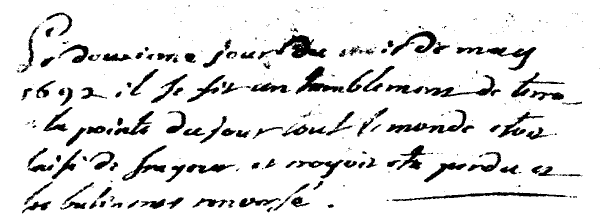 Le douzieme jour du mois de may
1692 il se fit un tramblement de terre
la pointe du jour tout le monde etoit
saisi de frayeur et croyoit etre perdu et
les batimens renversé.